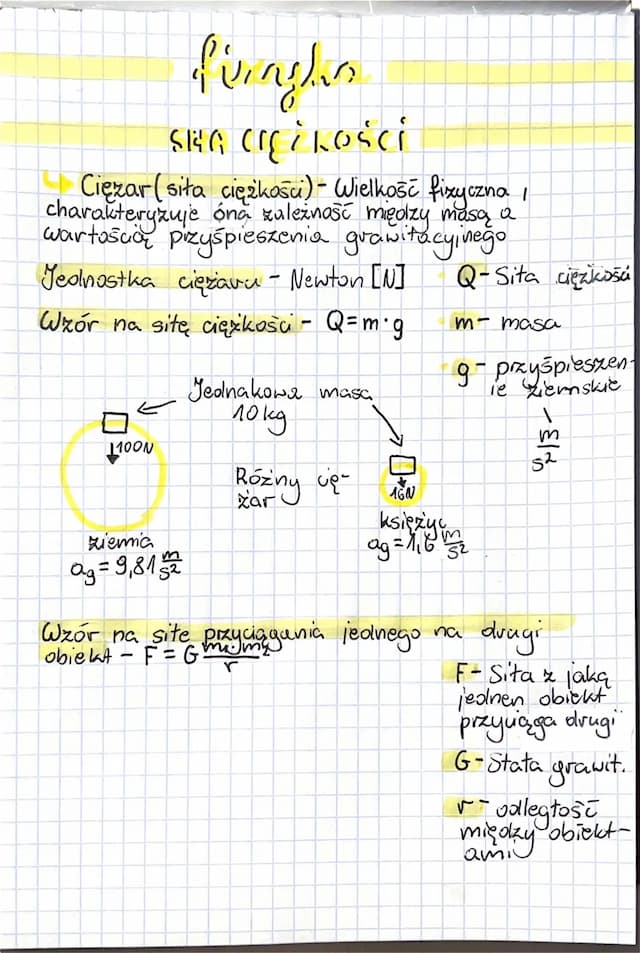 fizyka
SIŁA CIĘŻKOŚCI
↳ Ciężar (siła ciężkości) - Wielkość fizyczna,
charakteryzuje ona zależność między masą a
wartością przyśpieszenia grawitacyjnego
Jednostka ciężaru - Newton [N]
Wzór na siłę ciężkości - Q=m·g
Q - Siła ciężkości
m - masa
g - przyśpieszen-
ie ziemskie
m
s²
Jednakowa masa
10kg
100N
Różny cię-
żar
16N
ziemia
ag = 9,81 m/s²
księżyc
ag = 1,6 m/s²
Wzór na siłę przyciągania jednego na drugi
obiekt - F = G m₁·m₂/r
F - Siła z jaką
jednen obiekt
przyciąga drugi
G - Stała grawit.
r - odległość
między obiekt-
ami